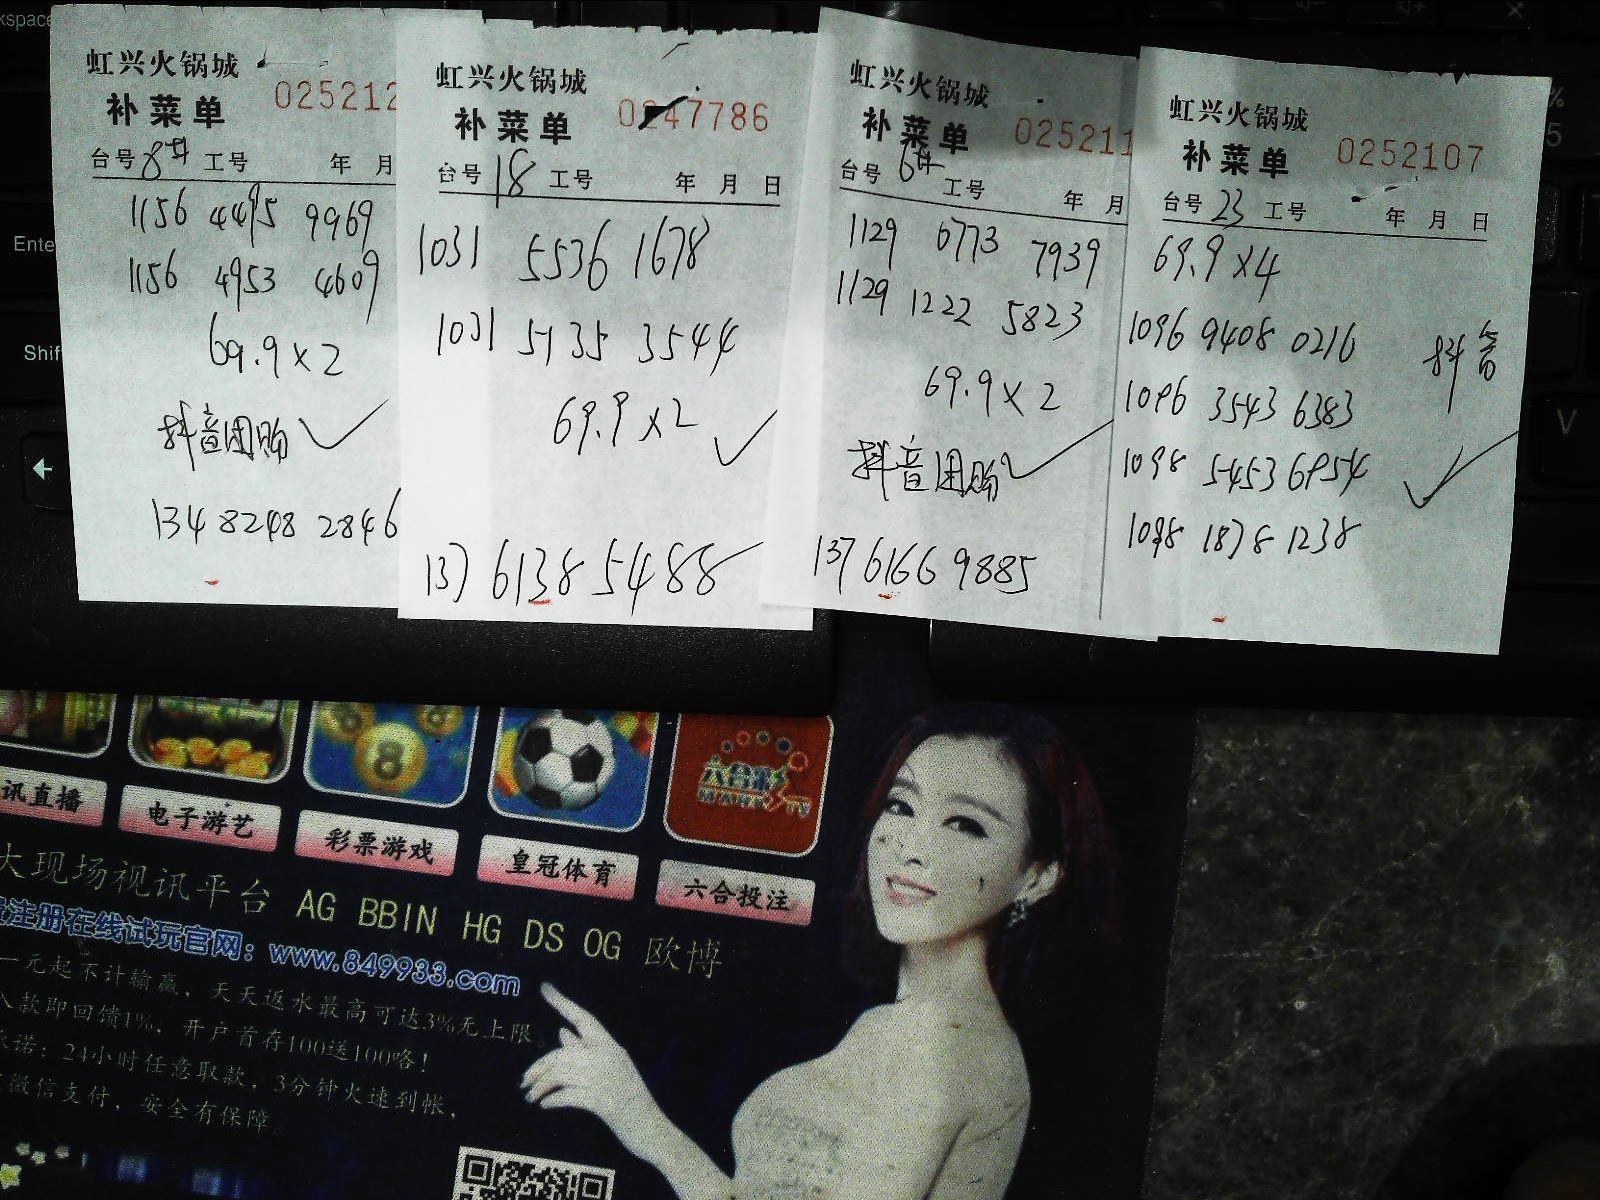 kspace
Ente
Shif
%
5
V
虹兴火锅城
补菜单 025212
台号 8# 工号 年 月
1156 4495 9969
1156 4953 4609
69.9×2
抖音团购
134 8248 2846
虹兴火锅城
补菜单 0247786
台号 18 工号 年 月 日
1031 5536 1678
1031 5135 3544
69.9×2
137 6138 5488
虹兴火锅城
补菜单 025211
台号 6# 工号 年 月
1129 0773 7939
1129 1222 5823
69.9×2
抖音团购
137 6166 9885
虹兴火锅城
补菜单 0252107
台号 23 工号 年 月 日
69.9×4
1096 9408 0216
抖音
1096 3543 6383
1098 5453 6954
1098 1878 1238
讯直播
电子游艺
彩票游戏
皇冠体育
六合彩
六合投注
大现场视讯平台 AG BBIN HG DS OG 欧博
注册在线试玩官网：www.849933.com
一元起不计输赢，天天返水最高可达3%无上限。
款即回馈1%，开户首存100送100咯！
诺：24小时任意取款，3分钟火速到帐，
微信支付，安全有保障。